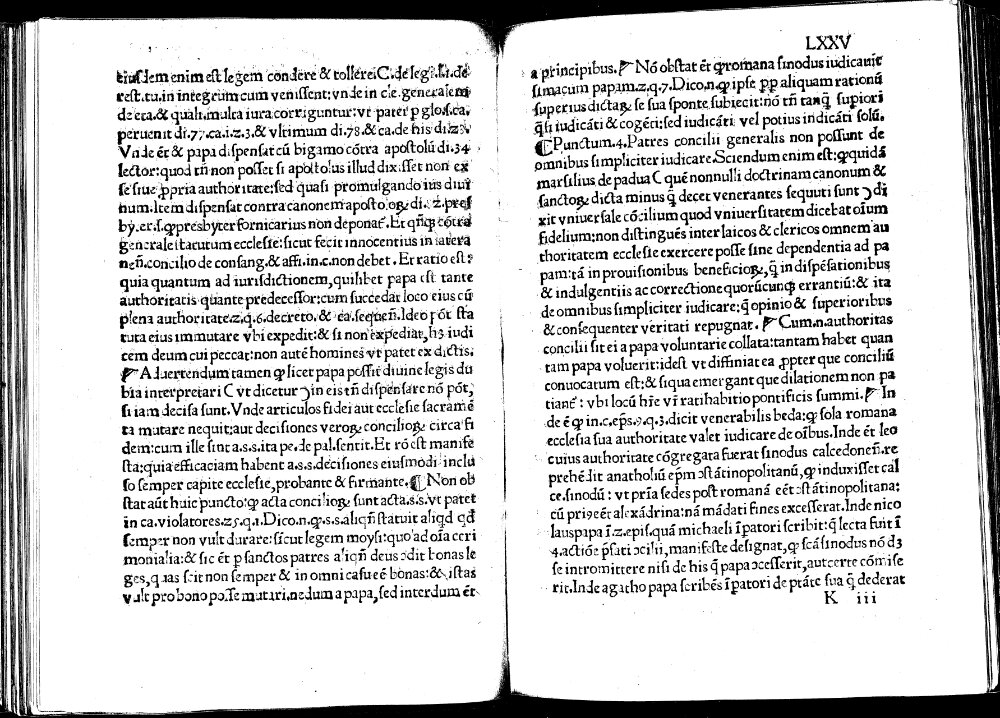 eiusdem enim est legem condere & tollere: C. de leg?. l. de
rest. tu. in integrum cum venissent: vnde in cle. generalem
de eta. & quali. multa iura corriguntur: vt patet ꝑ glos. ca.
peruenit di. 77. ca. i. z. 3. & vltimum di. 78. & ca. de his di. z8.
Vnde ēt & papa dispensat cū bigamo cōtra apostolū di. 34
lector: quod tn̄ non posset si apostolus illud dixisset non ex
se siue ꝓpria authoritate: sed quasi promulgando ius diui
num. Item dispensat contra canonem apostoloꝝ di. z. pres
by. er. s. ꝙ presbyter fornicarius non deponat̄. Et qn̄qꝫ cōtra
generale statutum ecclesie: sicut fecit innocentius in latera
nen̄. concilio de consang. & affi. in. c. non debet. Et ratio est:
quia quantum ad iurisdictionem, quilibet papa est tante
authoritatis quante predecessor: cum succedat loco eius cū
plena authoritate. z. q. 6. decreto. & ca. sequen̄. Ideo pōt sta
tuta eius immutare vbi expedit: & si non expediat, hꝫ iudi
cem deum cui peccat: non autē homines vt patet ex dictis.
Aduertendum tamen ꝙ licet papa possit diuine legis du
bia interpretari C vt dicetur Ↄ in eis tn̄ dispensare nō pōt,
si iam decisa sunt. Vnde articulos fidei aut ecclesie sacramē
ta mutare nequit: aut decisiones veroꝝ concilioꝝ circa fi
dem: cum ille sint a. s. s. ita pe. de pal. sentit. Et rō est manife
sta: quia efficaciam habent a. s. s. decisiones eiusmodi inclu
so semper capite ecclesie, probante & firmante. ¶ Non ob
stat aūt huic puncto: ꝙ acta concilioꝝ sunt acta. s. s. vt patet
in ca. violatores. z5. q. 1. Dico. n. ꝙ. s. s. aliqn̄ statuit aliqd qd
semper non vult durare: sicut legem moysi: quo ad oīa ceri
monialia: & sic ēt ꝑ sanctos patres aliqn̄ deus ↄdit bonas le
ges, quas scit non semper & in omni casu eē bonas: & istas
vult pro bono posse mutari. nedum a papa, sed interdum ēt
LXXV
a principibus. Nō obstat ēt ꝙ romana sinodus iudicauit
simacum papam. z. q. 7. Dico. n. ꝙ ipse ꝓꝑ aliquam rationū
superius dictaꝝ se sua sponte subiecit: nō tn̄ tanq̄ supiori
q̄si iudicāti & cogēti: sed iudicāti vel potius indicāti solū.
¶ Punctum. 4. Patres concilii generalis non possunt de
omnibus simpliciter iudicare. Sciendum enim est: ꝙ quidā
marsilius de padua C quē nonnulli doctrinam canonum &
sanctoꝝ dicta minus q̄ decet venerantes sequuti sunt Ↄ di
xit vniuersale cōcilium quod vniuersitatem dicebat oīum
fidelium: non distinguēs inter laicos & clericos omnem au
thoritatem ecclesie exercere posse sine dependentia ad pa
pam: tā in prouisionibus beneficioꝝ, q̄ in dispēsationibus
& indulgentiis ac correctione quorūcunqꝫ errantiū: & ita
de omnibus simpliciter iudicare: q̄ opinio & superioribus
& consequenter veritati repugnat. Cum. n. authoritas
concilii sit ei a papa voluntarie collata: tantam habet quan
tam papa voluerit: idest vt diffiniat ea ꝓpter que conciliū
conuocatum est: & siqua emergant que dilationem non pa
tiant̄: vbi locū hr̄e vr̄ ratihabitio pontificis summi. In
de ē ꝙ in. c. ep̄s. 9. q. 3. dicit venerabilis beda: ꝙ sola romana
ecclesia sua authoritate valet iudicare de oībus. Inde ēt leo
cuius authoritate cōgregata fuerat sinodus calcedonen̄. re
prehēdit anatholiū ep̄m ↄstātinopolitanū, ꝙ induxisset cal
ce. sinodū: vt pria sedes post romanā eēt ↄstātinopolitana:
cū prius eēt alexādrina: nā mādati fines excesserat. Inde nico
laus papa ī. z. epis. quā michaeli īpatori scribit: q̄ lecta fuit ī
4. actiōe p̄fati ↄcilii, manifeste designat, ꝙ scā sinodus nō dꝫ
se intromittere nisi de his q̄ papa ↄcesserit, aut certe cōmise
rit. Inde agatho papa scribēs īpatori de ptāte sua q̄ dederat
K iii